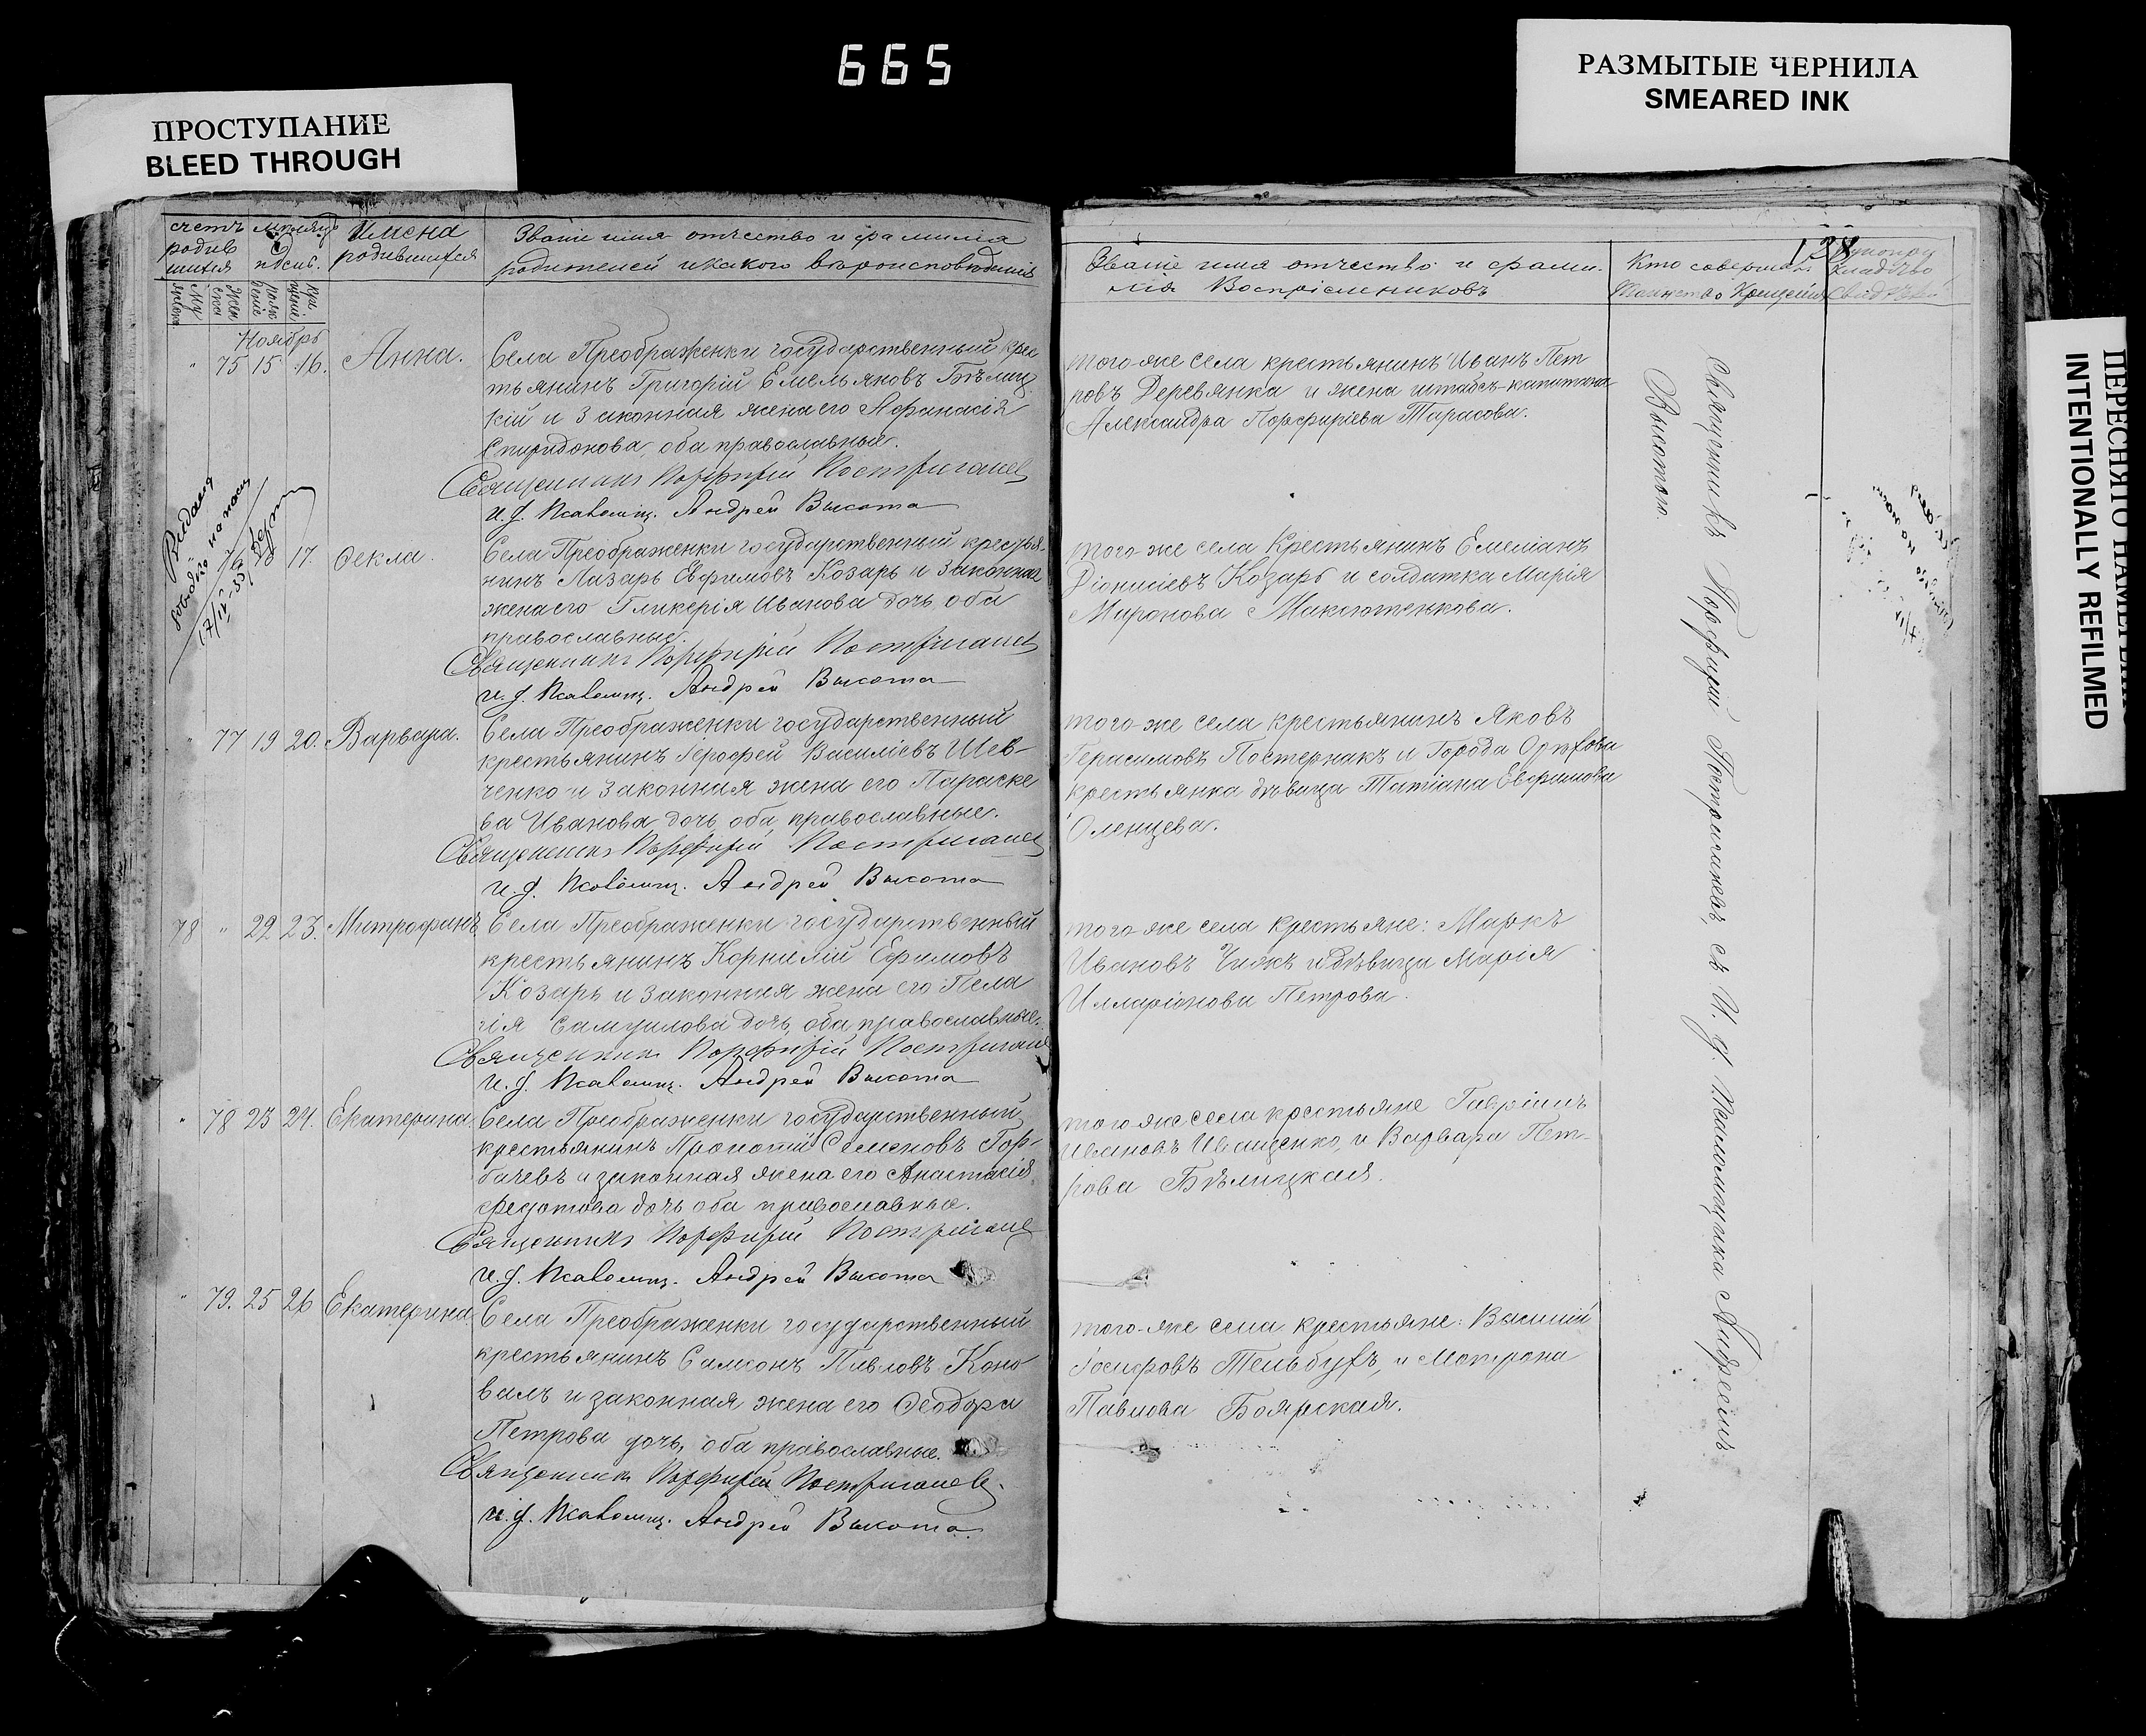 665
ПРОСТУПАНИЕ
BLEED THROUGH
РАЗМЫТЫЕ ЧЕРНИЛА
SMEARED INK
ПЕРЕСНЯТО НАМЕРЕННО
INTENTIONALLY REFILMED
счетъ
родив
шихся
мѣсяцъ
и
день.
Имена
родившихся
Званіе имя отчество и фамилія
родителей и какого вѣроисповѣданія
Званіе имя отчество и фами-
лія Воспріемниковъ
Кто совершалъ
Таинство Крещенія
138
Ноябрь
" 75 15 16. Анна.
Села Преображенки государственный крес
тьянинъ Григорій Емельяновъ Бѣлиц
кій и законная жена его Афанасія
Спиридонова, оба православные.
Священникъ Порфирій Постриганев
и. д. Псаломщ. Андрей Высота
того-же села крестьянинъ Иванъ Пет
ровъ Деревянка и жена штабсъ-капитана
Александра Порфиріева Тарасова.
Выдана
17/IV-35
17. Ѳекла.
Села Преображенки государственный крестья-
нинъ Лазарь Евфимовъ Козарь и законная
жена его Гликерія Иванова дочь, оба
православные.
Священникъ Порфирій Постриганев
и. д. Псаломщ. Андрей Высота
того-же села Крестьянинъ Емеліанъ
Діонисіевъ Козарь и солдатка Марія
Миронова Максютенкова.
" 77 19 20. Варвара.
Села Преображенки государственный
крестьянинъ Іерофей Василіевъ Шев-
ченко и законная жена его Параске
ва Иванова дочь, оба православные.
Священникъ Порфирій Постриганев
и. д. Псаломщ. Андрей Высота
того-же села крестьянинъ Яковъ
Герасимовъ Постернакъ и Города Орѣхова
крестьянка дѣвица Татіана Евфимова
Оленцева.
78 " 22 23. Митрофанъ
Села Преображенки государственный
крестьянинъ Корнилій Ефимовъ
Козарь и законная жена его Пела
гія Самуилова дочь, оба православные.
Священникъ Порфирій Постриганев
и. д. Псаломщ. Андрей Высота
того-же села крестьяне: Маркъ
Ивановъ Чижъ и дѣвица Марія
Илларіонова Петрова.
" 78 23 24. Екатерина
Села Преображенки государственный
крестьянинъ Прокопій Семеновъ Гор-
бачевъ и законная жена его Анастасія
Федотова дочь оба православные.
Священникъ Порфирій Постриганев
и. д. Псаломщ. Андрей Высота
того же села крестьяне Гавріилъ
Ивановъ Иващенко, и Варвара Пет-
рова Бѣлицкая.
" 79. 25 26 Екатерина
Села Преображенки государственный
крестьянинъ Самсонъ Павловъ Коно
валъ и законная жена его Ѳеодора
Петрова дочь, оба православные.
Священникъ Порфирій Постриганев.
и. д. Псаломщ. Андрей Высота
того-же села крестьяне: Василій
Іосифовъ Тельбухъ, и Матрона
Павлова Боярская.
Священникъ Порфирій Постриганевъ, съ И. д. Псаломщика Андреемъ
Высотою.